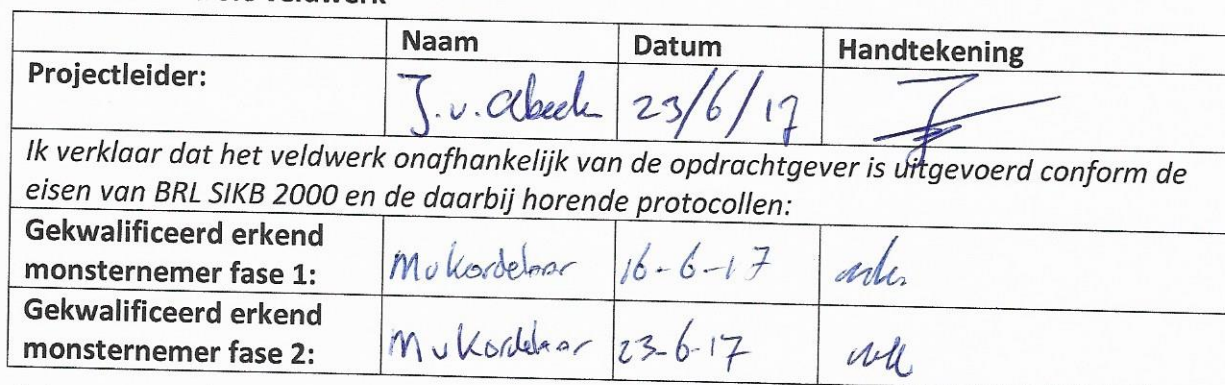 veldwerk
Naam Datum Handtekening
Projectleider: J. v. 23/6/17
Ik verklaar dat het veldwerk onafhankelijk van de opdrachtgever is uitgevoerd conform de
eisen van BRL SIKB 2000 en de daarbij horende protocollen:
Gekwalificeerd erkend
monsternemer fase 1: M v Kordelaar 16-6-17
Gekwalificeerd erkend
monsternemer fase 2: M v Kordelaar 23-6-17